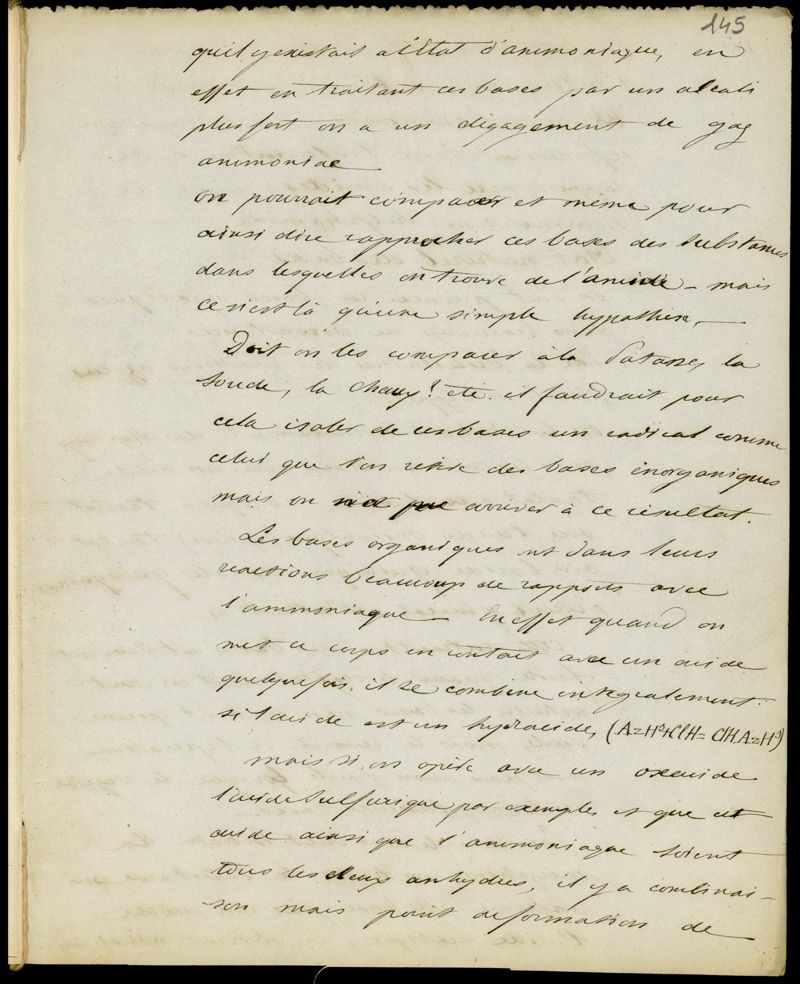 145
qu'il y existait à l'état d'ammoniaque, en
effet en traitant ces bases par un alcali
plus fort on a un dégagement de gaz
ammoniac
on pourrait comparer et même pour
ainsi dire rapprocher ces bases des substances
dans lesquelles on trouve de l'amide – mais
ce n'est là qu'une simple hypothèse. —
Doit on les comparer à la Potasse, la
Soude, la Chaux? etc. il faudrait pour
cela isoler de ces bases un radical comme
celui que l'on retire des bases inorganiques
mais on n'a pu arriver à ce résultat.
Les bases organiques ont dans leurs
réactions beaucoup de rapports avec
l'ammoniaque — En effet quand on
met ce corps en contact avec un acide
quelquefois il se combine intégralement
si l'acide est un hydracide, (AzH³+ClH= ClH.AzH³)
mais si on opère avec un oxacide
l'acide sulfurique par exemple, et que cet
acide ainsi que l'ammoniaque soient
tous les deux anhydres, il y a combinai-
son mais point de formation de